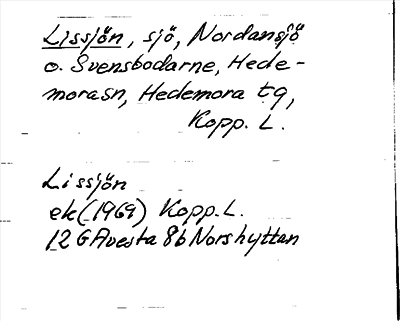 Lissjön, sjö, Nordansjö
o. Svensbodarne, Hede-
morasn, Hedemora tg,
Kopp. L.
Lissjön
ek (1969) Kopp. L.
12 G Avesta 8b Norshyttan